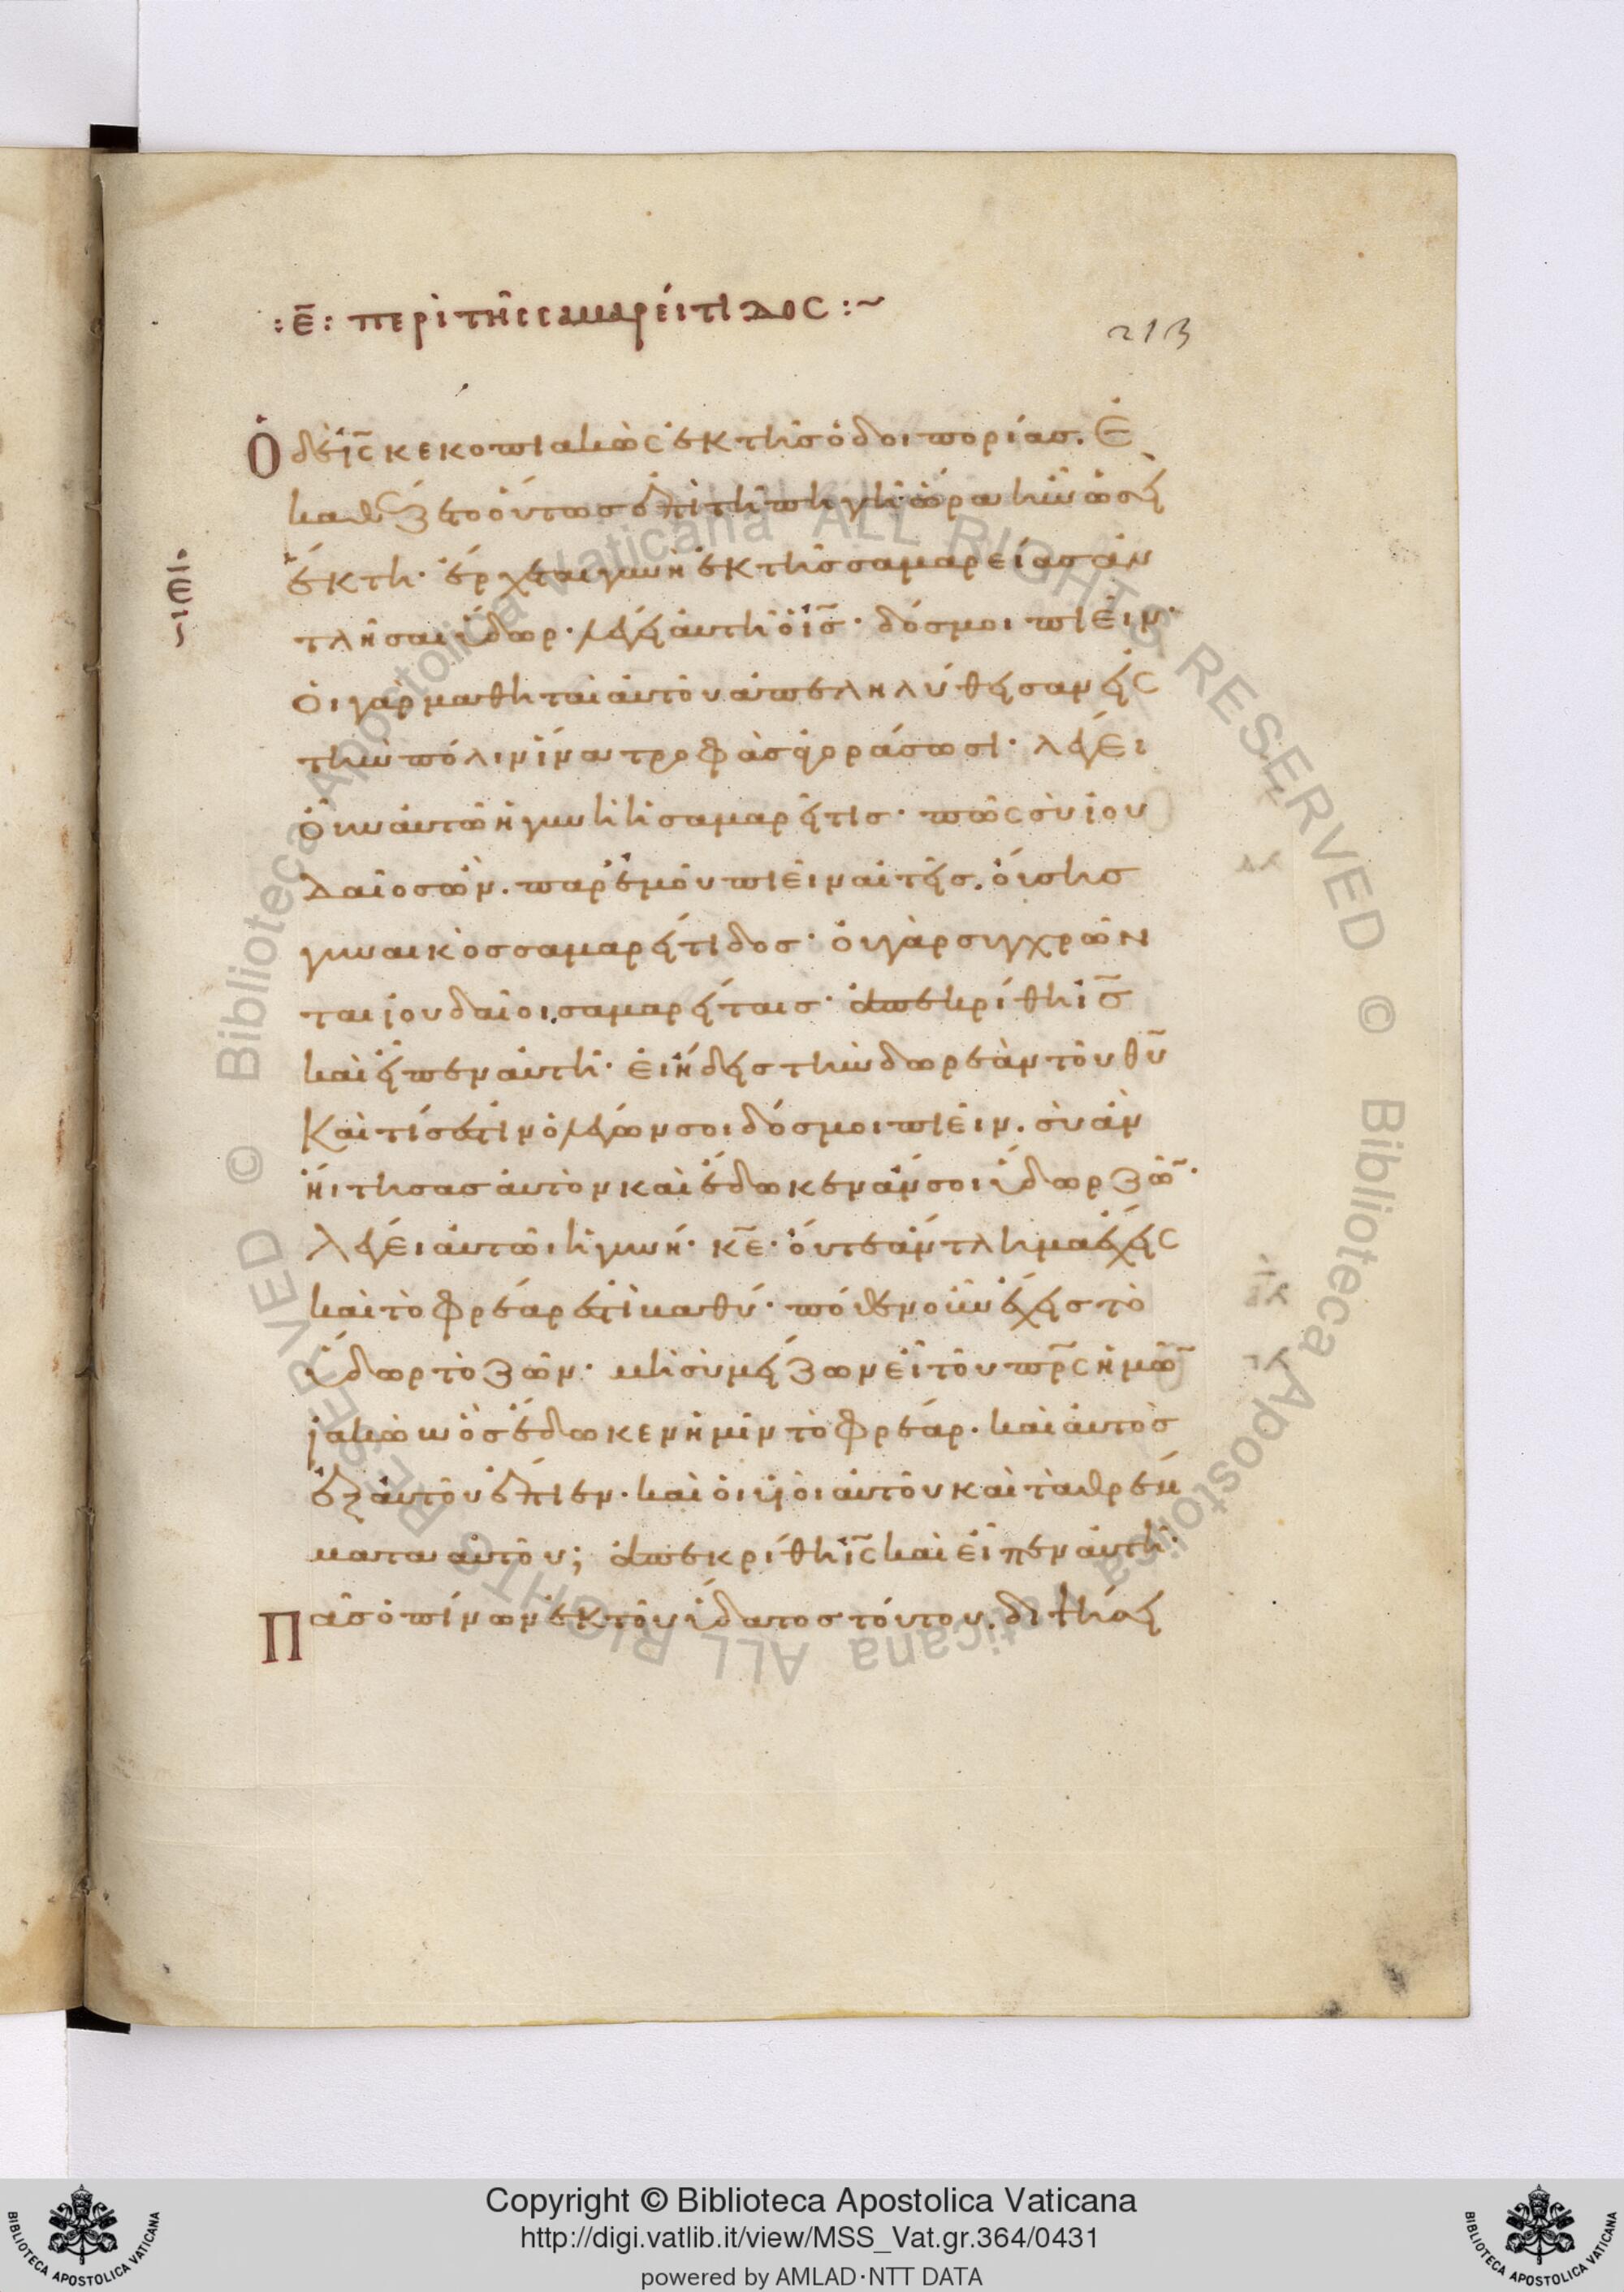 :ε̅: περὶ τῆς σαμαρείτιδος :~
213
Ὁ δὲ ι̅ς̅ κεκοπιακὼς ἐκ τῆς ὁδοιπορίας. ἐ
καθέζετο οὕτως ἐπὶ τῆ πηγῆ· ὥρα ἦν ὡσεὶ
ἕκτη· ἔρχεται γυνὴ ἐκ τῆς σαμαρείας ἀν
τλῆσαι ὕδωρ· λέγει αὐτῆ ὁ ι̅ς̅· δός μοι πιεῖν·
οἱ γὰρ μαθηταὶ αὐτοῦ ἀπεληλύθεισαν εἰς
τὴν πόλιν ἵνα τροφὰς ἀγοράσωσι· λέγει
οὖν αὐτῶ ἡ γυνὴ ἡ σαμαρεῖτις· πῶς σὺ ἰου
δαῖος ὢν. παρ' ἐμοῦ πιεῖν αἰτεῖς. οὔσης
γυναικὸς σαμαρείτιδος· οὐ γὰρ συγχρῶν
ται ἰουδαῖοι σαμαρείταις· ἀπεκρίθη ι̅ς̅
καὶ εἶπεν αὐτῆ· εἰ ἤδεις τὴν δωρεὰν τοῦ θ̅υ̅
καὶ τίς ἐστιν ὁ λέγων σοι δός μοι πιεῖν. σὺ ἂν
ἤιτησας αὐτὸν καὶ ἔδωκεν ἄν σοι ὕδωρ ζῶ̅·
λέγει αὐτῶι ἡ γυνή· κ̅ε̅· οὔτε ἄντλημα ἔχεις
καὶ τὸ φρέαρ ἐστὶ βαθύ· πόθεν οὖν ἔχεις τὸ
ὕδωρ τὸ ζῶν· μὴ σὺ μείζων εἶ τοῦ π̅ρ̅ς̅ ἡμῶ̅
ἰακὼβ ὃς ἔδωκεν ἡμῖν τὸ φρέαρ. καὶ αὐτὸς
ἐξ αὐτοῦ ἔπιεν. καὶ οἱ υἱοὶ αὐτοῦ καὶ τὰ θρέμ
ματα αὐτοῦ; ἀπεκρίθη ι̅ς̅ καὶ εἶπεν αὐτῆ·
Πᾶς ὁ πίνων ἐκ τοῦ ὕδατος τούτου. διψήσει
Copyright © Biblioteca Apostolica Vaticana
http://digi.vatlib.it/view/MSS_Vat.gr.364/0431
powered by AMLAD·NTT DATA
BIBLIOTECA APOSTOLICA VATICANA
BIBLIOTECA APOSTOLICA VATICANA